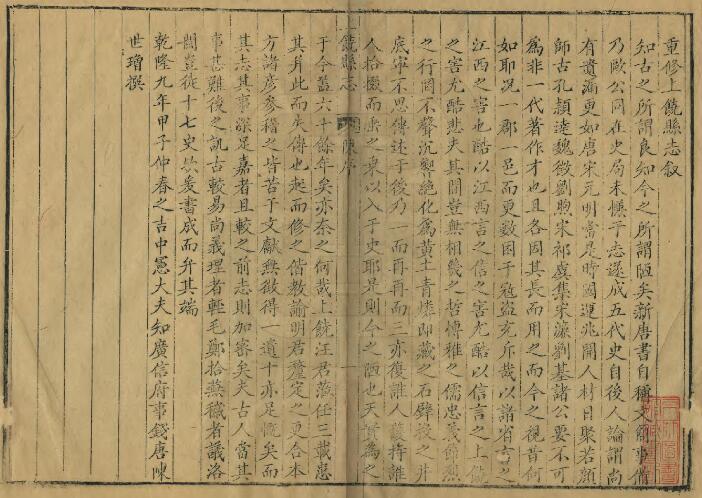 重修上饒縣志叙
知古之所謂良知今之所謂陋矣新唐書自稱文簡事備
乃歐公同在史局未慊乎志遂成五代史自後人論謂尚
有遺漏更如唐宋元明當是時國運兆開人材日聚若顏
師古孔穎達魏徵劉煦宋祁虞集宋濂劉基諸公要不可
為非一代著作才也且各因其長而用之而今之視昔何
如耶況一郡一邑而更數因于寇盜兵斥哉以諸省言之
江西之害也酷以江西言之信之害尤酷以信言之上饒
之害尤酷悲夫其間豈無相幾之哲博雅之儒忠義節烈
之行罔不聲沉響絕化為黃土青燐即藏之石壁投之井
底寧不思傳述于後乃一而再再而三亦復誰人慕持誰
人拾掇而垂之來以入于史耶是則今之陋也天實為之
上饒縣志 陳序 一
于今蓋六十餘年矣亦奈之何哉上饒汪君蒞任三載患
其并此而失傳也起而修之偕教諭明君釐定之更合本
方諸彥參稽之皆苦于文獻無徵得一遺十亦足慨矣而
其志其事深足嘉者且較之前志則加審矣夫古人當其
事甚難後之訊古較易尚義理者輕毛鄭拾蕪穢者譏洛
閩豈從十七史然爰書成而弁其端
乾隆九年甲子仲春之吉中憲大夫知廣信府事錢唐陳
世增撰